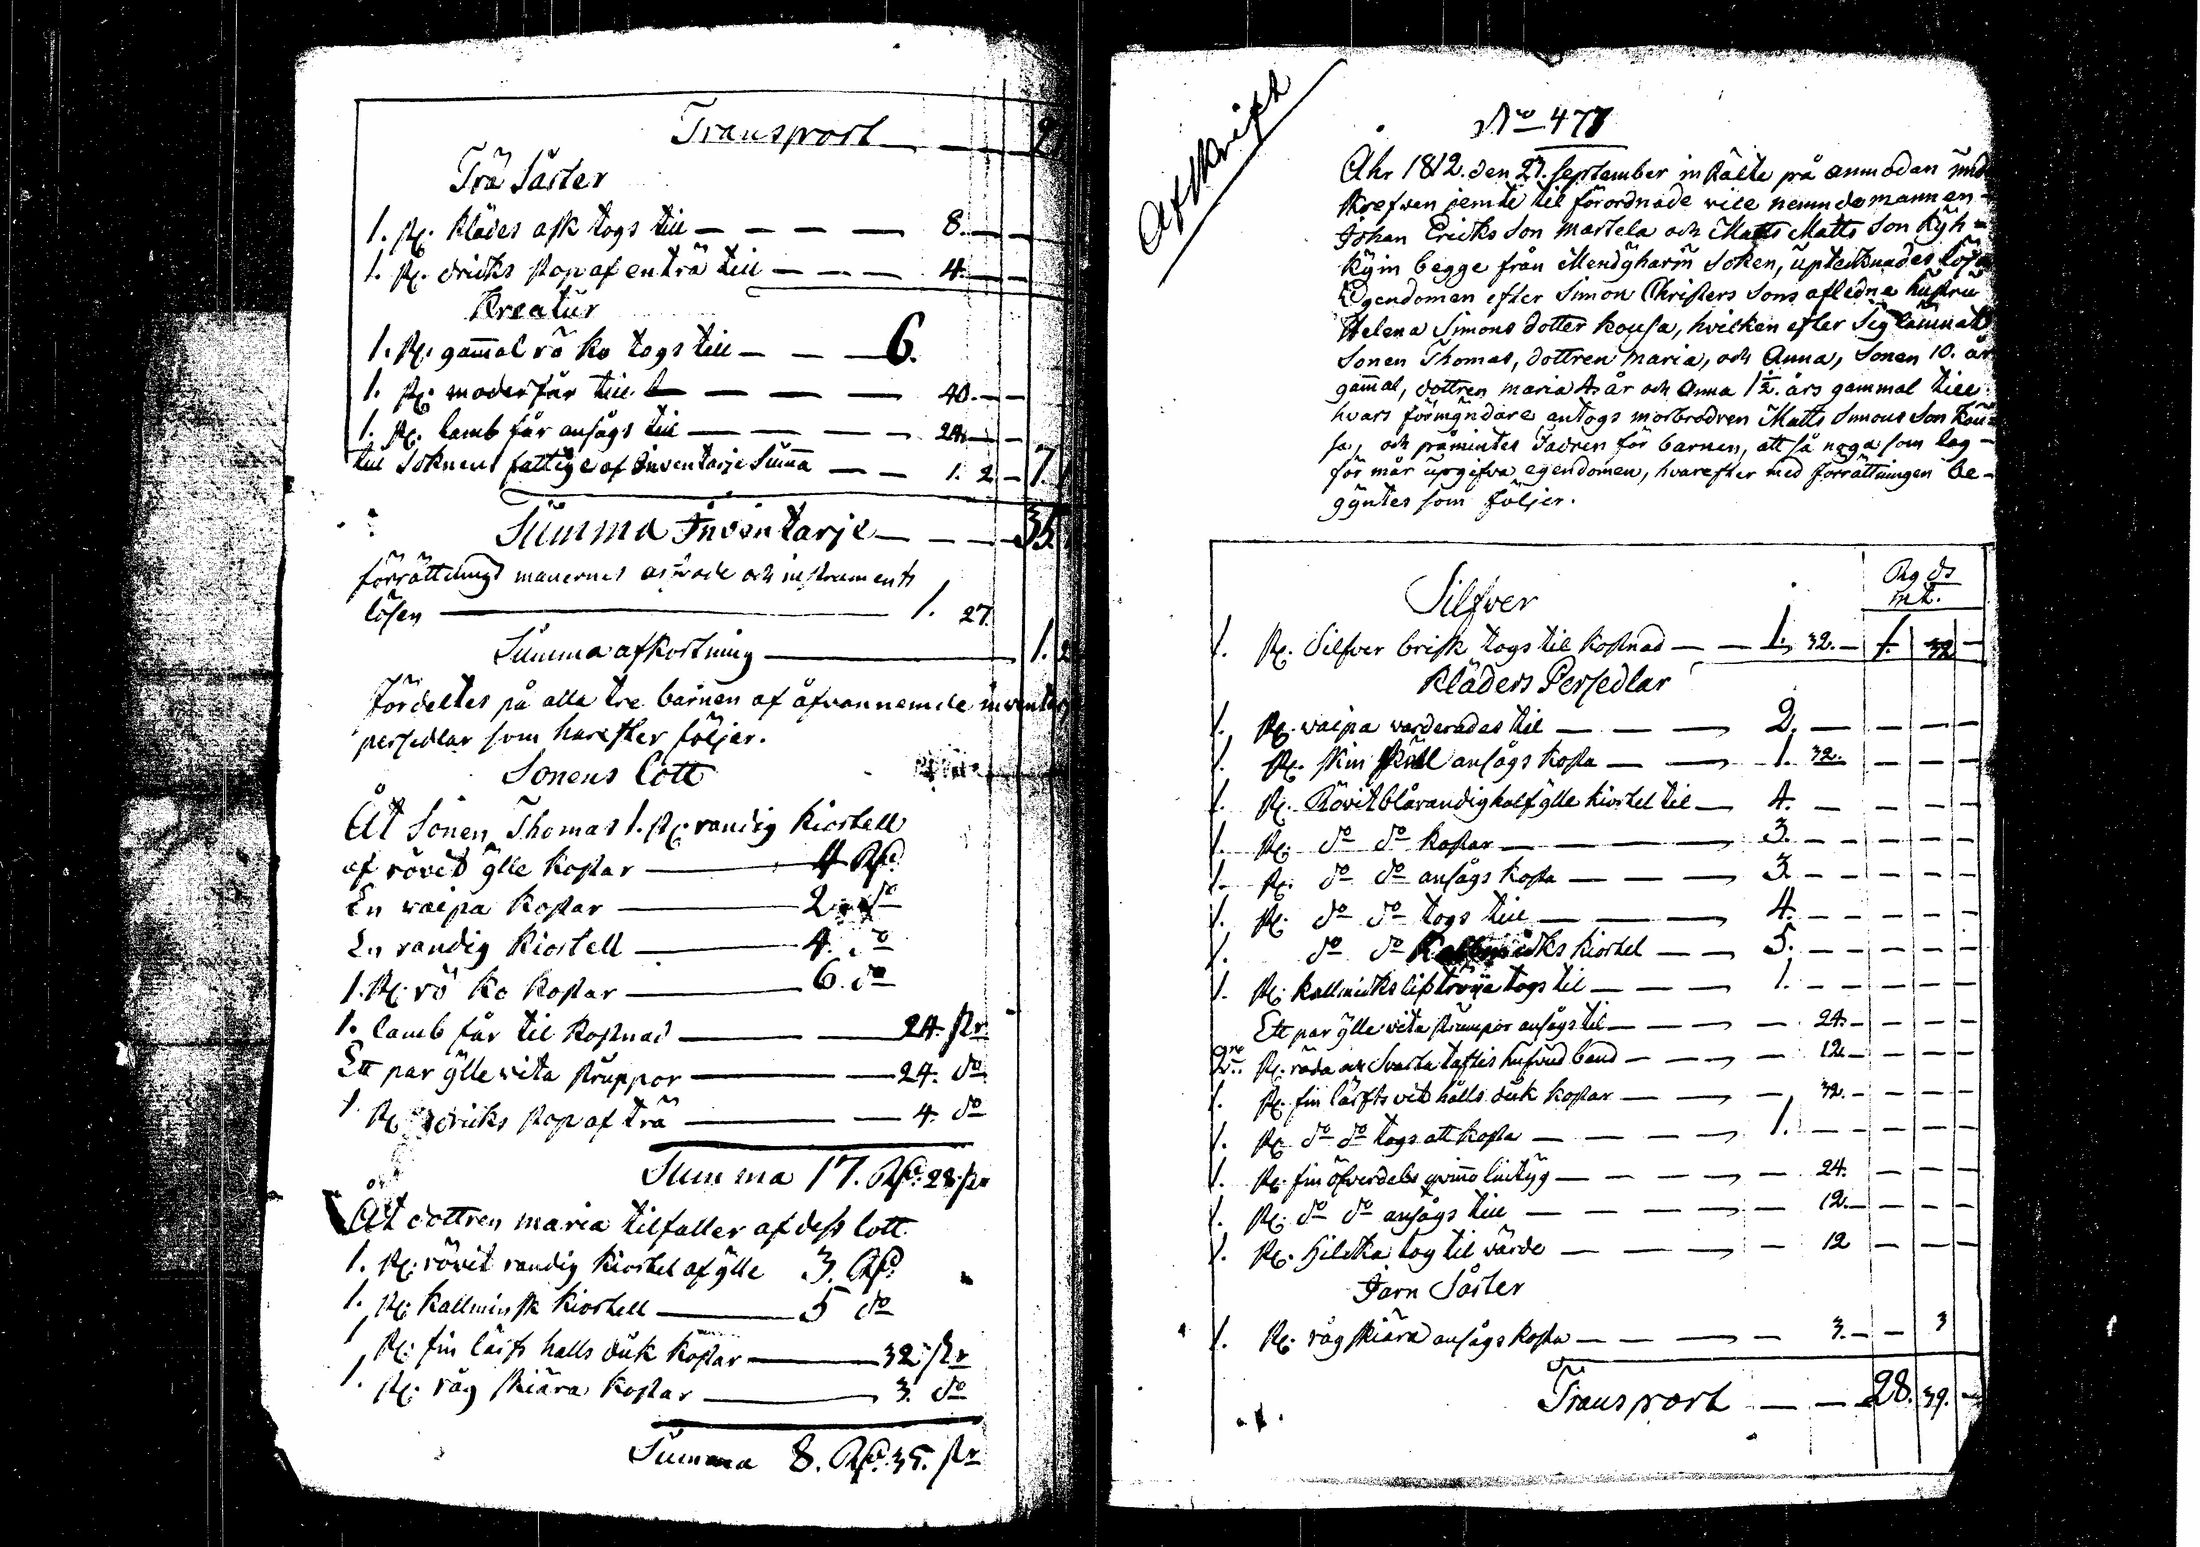 Transport — — 2
Trä Såker
1. st. klädes ask togs till — — — — 8. — —
1. st. dricks stop af en trä till — — — 4. — —
Kreatur
1. st. gam̄al rö ko togs till — — — 6.
1. st. moder får till — — — — 40. — —
1. st. lamb får ansågs till — — — — 24. — —
till Soknens fattige af Inventarje Sum̄a — — 1. 2 — 7.
Summa Inventarje — — — 35
förrättnings manernes arvode och instruments
lösen — 1. 27.
Summa afkortning — 1. 2
Fördeltes på alla tre barnen af åfvannemde inventarj
persedlar som harefter följer.
Sonens Lott
Åt Sonen Thomas 1. st. randig kiortell
af rövit ÿlle kostar — 4 Rd.
En vaipa kostar — 2 do
En randig kiortell — 4. do
1. st. rö ko kostar — 6. do
1. lamb får til kostnad — 24. sk
Ett par ÿlle vita struppor — 24. do
1 st. dricks stop af trä — 4. do
Summa 17. Rd. 28. sk
Åt dottren maria tilfaller af dess lott
1. st. rövit randig kiortel af ÿlle 3. Rd.
1. st. kallminsk kiortell — 5 do
1 st. fin lärfts halls duk kostar — 32. sk
1. st. råg skiära kostar — 3. do
Summa 8. Rd. 35. sk
Afskrift
No 477
Åhr 1812. den 27. September inkälte på anmodan und
skrefven jemte til förordnade vice nemndemannen
Johan Ericks Son Martela och Matts Matts Son Kÿh=
kÿin begge från Mendÿharju Soken, uptecknades lösa
Egendomen efter Simon Christers Sons afledne hustru
Helena Simons dotter Kousa, hvilken efter Sig lämnat
Sonen Thomas, dottren Maria, och Anna, Sonen 10. år
gam̄al, dottren maria 4. år och Anna 1½. års gammal till
hvars förmÿndare antogs morbrodren Matts Simons Son Kou=
sa, och påmintes Fadren för barnen, att så noga som lag—
för mår upgifva egendomen, hvarefter med förrättningen be—
gÿntes som följer.
Rg ds
mt.
Silfver
1. st. Silfver brisk togs til kostnad — — 1. 32. — 1. 32 —
Kläders Persedlar
1. st. vaipa varderades til — — — 2. — — — —
1. st. skin ansågs kosta — — 1. 32. — — —
1. st. Rövit blårandig half ÿlle kiortel til — 4. — — — —
1. st. do do kostar — — — 3. — — — — —
1. st. do do ansågs kosta — — — 3. — — — — —
1. st. do do togs till — — — 4. — — — — —
1. do do kiortel — — 5. — — — — —
1. st. kallmicks lifströija togs til — — — 1. — — — — —
Ett par ÿlle vita strumpor ansågs til — — — — 24. — — — —
2ne st. röda och Svarta taftes hufvud band — — — — 12. — — — —
1. st. fin lärfts vit halls duk kostar — — — 32. — — — —
1. st. do do togs att kosta — — — — 1. — — — — —
1. st. fin öfverdels qvin̄o lintÿg — — — — 24. — — —
1. st. do do ansågs till — — — — — 12. — — — —
1. st. Hilcka tog til värde — — — — 12 — — —
Jarn Såker
1. st. råg skiära ansågs kosta — — — — 3. — — 3
Transport — — 28. 39. —